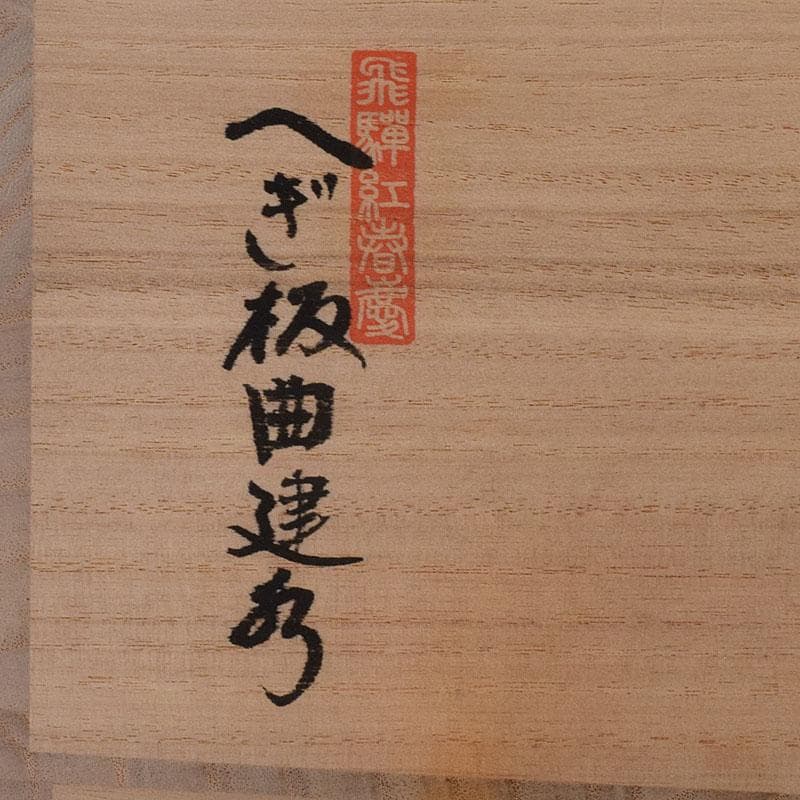 飛騨紅春慶
へぎ板曲建水